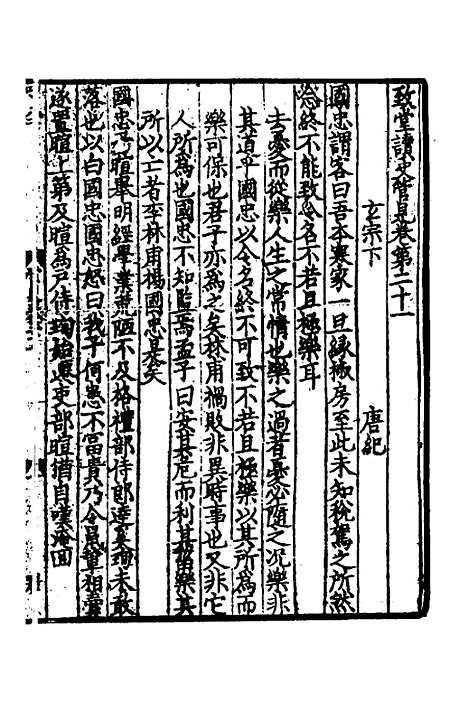 致堂讀史管見卷第二十一
玄宗下　唐紀
國忠謂客曰吾本寒家一旦緣椒房至此未知稅駕之所然
念終不能致令名不若且極樂耳
去憂而從樂人生之常情也樂之過者憂必隨之况樂非
其道乎國忠以令名終不可致不若且極樂以其所為而
樂可保也君子亦為之矣林甫禍敗非異時事也又非它
人所為也國忠不知監焉孟子曰安其危而利其菑樂其
所以亡者李林甫楊國忠是矣
國忠子暄舉明經學業荒陋不及格禮部侍郎達奚珣未敢
落也以白國忠國忠怒曰我子何患不冨貴乃令鼠輩相賣
遂置暄上第及暄為戶侍珣始遷吏部暄猶自嘆淹囬